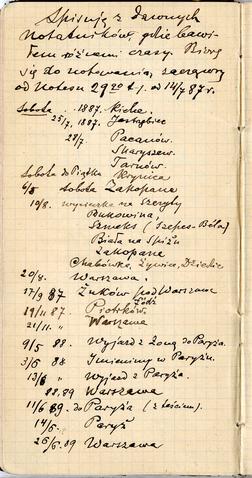 Spisuję z dawnych
notatników, gdzie bawi-
łem różnemi czasy. Biorę
się do notowania, zacząwszy
od Notesu 2920 t.j. od 14/7 87 r.
Sobota . 1887. Kielce.
25/7. 1887. Jastrzębiec
28/7 Pacanów.
Skaryszew.
Tarnów.
Sobota do Piątku Krynica
6/8 sobota Zakopane
10/8. wycieczka na Szczyty
Bukowina,
Szmeks (Szepes-Béla)
Biała na Spiżu
Zakopane
Chabówka, Żywiec, Dziedzic
20/8. Warszawa.
17/9 87 Żuków pod Warszawą
Łódź
19/11 87 Piotrków.
21/11 „ Warszawa
9/5 88 Wyjazd z żoną do Paryża.
3/6 88 Imieniny w Paryżu.
13/6 „ Wyjazd z Paryża.
88.89 Warszawa
11/6 89. do Paryża (z teściem).
14/6. Paryż
26/6. 89 Warszawa